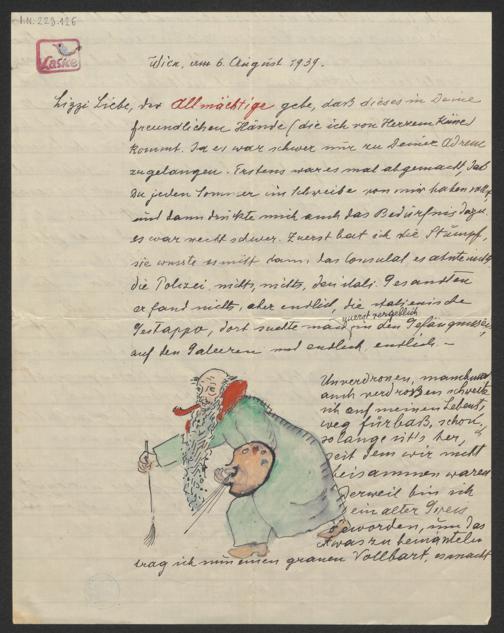 I.N. 229.126
Laske
Wien, am 6. August 1939.
Lizzi Liebe, der Allmächtige gebe, daß dieses in Deine
freundlichen Hände (die ich von Herzen küsse)
kommt. Ja es war schwer mir zu Deiner Adresse
zu gelangen. Erstens war es mal abgemacht, daß
Du jeden Sommer ein Schreibe von mir haben sollst,
und dann drückte mich auch das Bedürfnis dazu.
es war recht schwer. Zuerst bat ich die Stumpf,
sie wusste es nicht dann das Consulat es ahnte nichts
die Polizei nichts, nichts, den ital. Gesandten
er fand nichts, aber endlich, die italienische
Gestappo, dort suchte man zuerst vergeblich in den Gefängnissen,
auf den Galeeren und endlich, endlich. –
Unverdrossen, manchmal
auch verdroßen schreite
ich auf meinen Lebens-
weg fürbaß, schon,
so lange ist's her,
seit dem wir nicht
beisammen waren
Derweil bin ich
ein alter Greis
geworden, um das
etwas zu bemänteln
trag ich nun einen grauen Vollbart, es macht